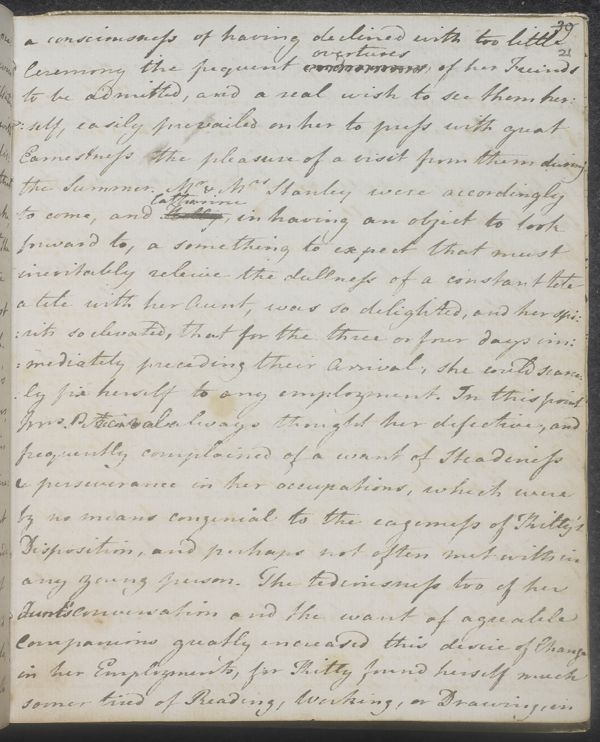 39
21
a consciousness of having declined with too little
Ceremony the frequent overtures of her Freinds
to be admitted, and a real wish to see them her:
:self, easily prevailed on her to press with great
Earnestness the pleasure of a visit from them during
the Summer. Mr & Mrs Stanley were accordingly
to come, and Catharine Kitty, in having an object to look
forward to, a something to expect that must
inevitably releive the dullness of a constant tete
a tete with her Aunt, was so delighted, and her spi:
:rits so elevated, that for the three or four days im:
:mediately preceding their Arrival, she could scarce:
:ly fix herself to any employment. In this point
Mrs. Percival always thought her defective, and
frequently complained of a want of Steadiness
& perseverance in her occupations, which were
by no means congenial to the eagerness of Kitty's
Disposition, and perhaps not often met with in
any young person. The tediousness too of her
Aunt's conversation and the want of agreable
Companions greatly encreased this desire of Change
in her Employments, for Kitty found herself much
sooner tired of Reading, Working, or Drawing, in